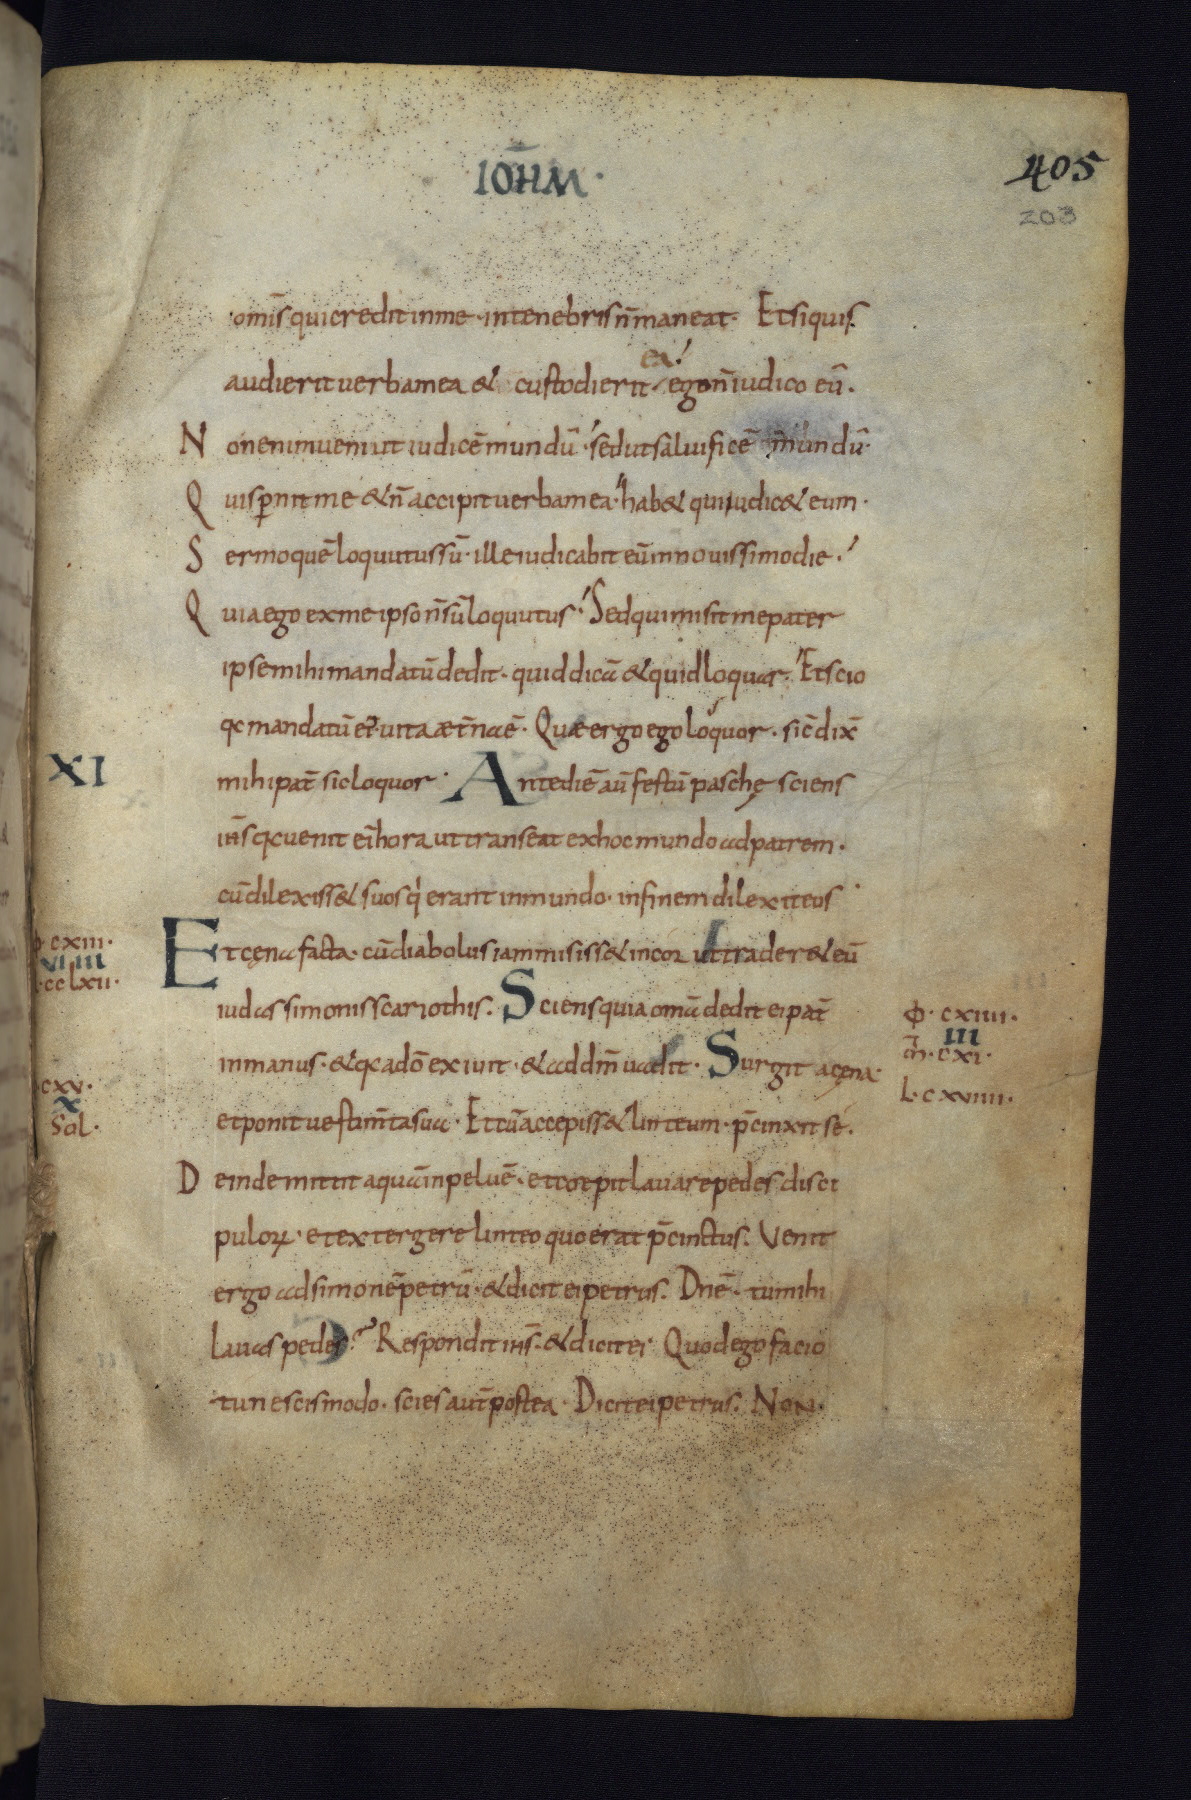 IOHM̄·
405
203
om̄isquicreditinme·intenebrisn̄maneat· Etsiquis
ea
audieritverbamea & custodierit· egon̄iudico eū·
Nonenimveniut iudicēmundū· sedutsaluificē mundū·
Quisp̄nitme &n̄accipitverbamea· hab& quiiudic& eum·
Sermoquēloquutussū· illeiudicabit eūinnouissimodie·
Quiaego exmeipson̄sūloquutus· Sedquimisitmepater
ipsemihimandatūdedit· quiddicā &quidloquar· Etscio
qc mandatū ei· uitaæt̄naē· Quæergoegoloquor· sic̄dix̄
XI
mihipat̄ sicloquor· Antediē aū festū paschę sciens
ih̄s qcvenit ei hora uttranseat exhocmundoadpatrem·
cūdilexiss& suosq̄ erant inmundo· infinemdilexiteos·
cxiii·
VI III
cclxii·
Etcęnafacta· cūdiabolusiammisiss& incor uttrader& eū
iudassimonisscariothis· Sciensquiaomā dedit eipat̄
inmanus· &qcadō exiuit· &addm̄uadit· Surgit acęna·
Φ· cxiiii·
III
m̄· cxi·
L· cxviiii·
cxv·
X
Sol·
etponituestim̄tasua· Etcūaccepiss& linteum· p̄cinxitse·
Deindemittitaquāinpeluē· etcoepitlauarepedesdisci
puloꝝ· etextergerelinteoquoerat p̄cinctus· Venit
ergo adsimonēpetrū· &dicit eipetrus· Dn̄e· tumihi
lauaspedes? Respondit ih̄s· &dicitei· Quodegofacio
tunescismodo· sciesaut̄postea· Diciteipetrus· Non·